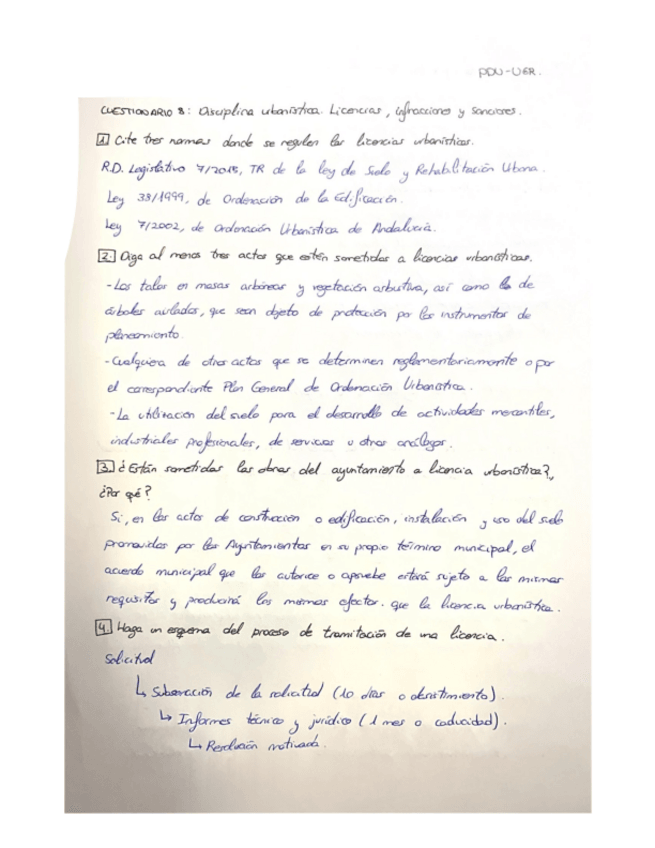 PDU-UGR.
CUESTIONARIO 8: Disciplina urbanística. Licencias, infracciones y sanciones.
1. Cite tres normas donde se regulen las licencias urbanísticas.
R.D. Legislativo 7/2015, TR de la ley de Suelo y Rehabilitación Urbana.
Ley 38/1999, de Ordenación de la Edificación.
Ley 7/2002, de Ordenación Urbanística de Andalucía.
2. Diga al menos tres actos que estén sometidos a licencias urbanísticas.
-Las talas en masas arbóreas y vegetación arbustiva, así como la de
árboles aislados, que sean objeto de protección por los instrumentos de
planeamiento.
-Cualquiera de otros actos que se determinen reglamentariamente o por
el correspondiente Plan General de Ordenación Urbanística.
-La utilización del suelo para el desarrollo de actividades mercantiles,
industriales profesionales, de servicios u otros análogos.
3. ¿Están sometidas las obras del ayuntamiento a licencia urbanística?,
¿Por qué?
Si, en los actos de construcción o edificación, instalación y uso del suelo
promovidos por los Ayuntamientos en su propio término municipal, el
acuerdo municipal que los autorice o apruebe estará sujeto a los mismos
requisitos y producirá los mismos efectos. que la licencia urbanística.
4. Haga un esquema del proceso de tramitación de una licencia.
Solicitud
↳ Subsanación de la solicitud (10 días o desistimiento).
↳ Informes técnico y jurídico (1 mes o caducidad).
↳ Resolución motivada.